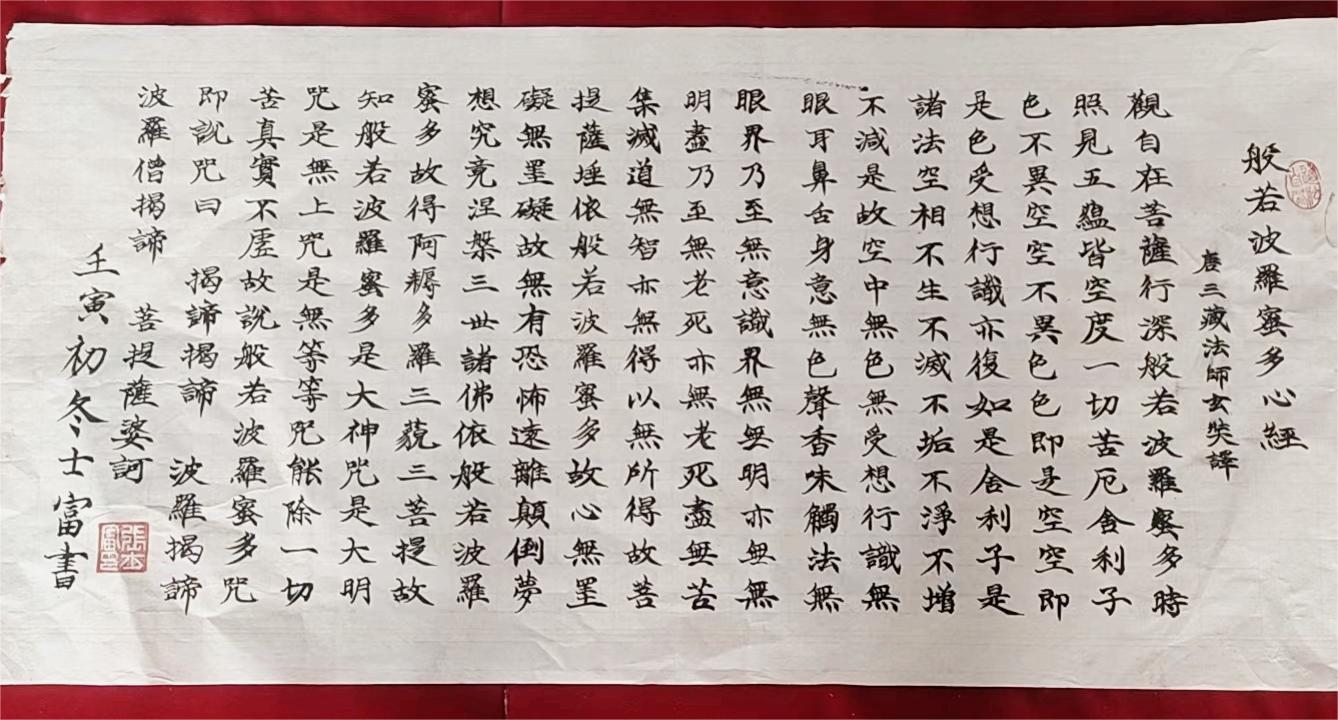 般若波羅蜜多心經
唐三藏法師玄奘譯
觀自在菩薩行深般若波羅蜜多時
照見五蘊皆空度一切苦厄舍利子
色不異空空不異色色即是空空即
是色受想行識亦復如是舍利子是
諸法空相不生不滅不垢不淨不增
不減是故空中無色無受想行識無
眼耳鼻舌身意無色聲香味觸法無
眼界乃至無意識界無無明亦無無
明盡乃至無老死亦無老死盡無苦
集滅道無智亦無得以無所得故菩
提薩埵依般若波羅蜜多故心無罣
礙無罣礙故無有恐怖遠離顛倒夢
想究竟涅槃三世諸佛依般若波羅
蜜多故得阿耨多羅三藐三菩提故
知般若波羅蜜多是大神咒是大明
咒是無上咒是無等等咒能除一切
苦真實不虛故說般若波羅蜜多咒
即說咒曰 揭諦揭諦 波羅揭諦
波羅僧揭諦 菩提薩婆訶
壬寅初冬士富書